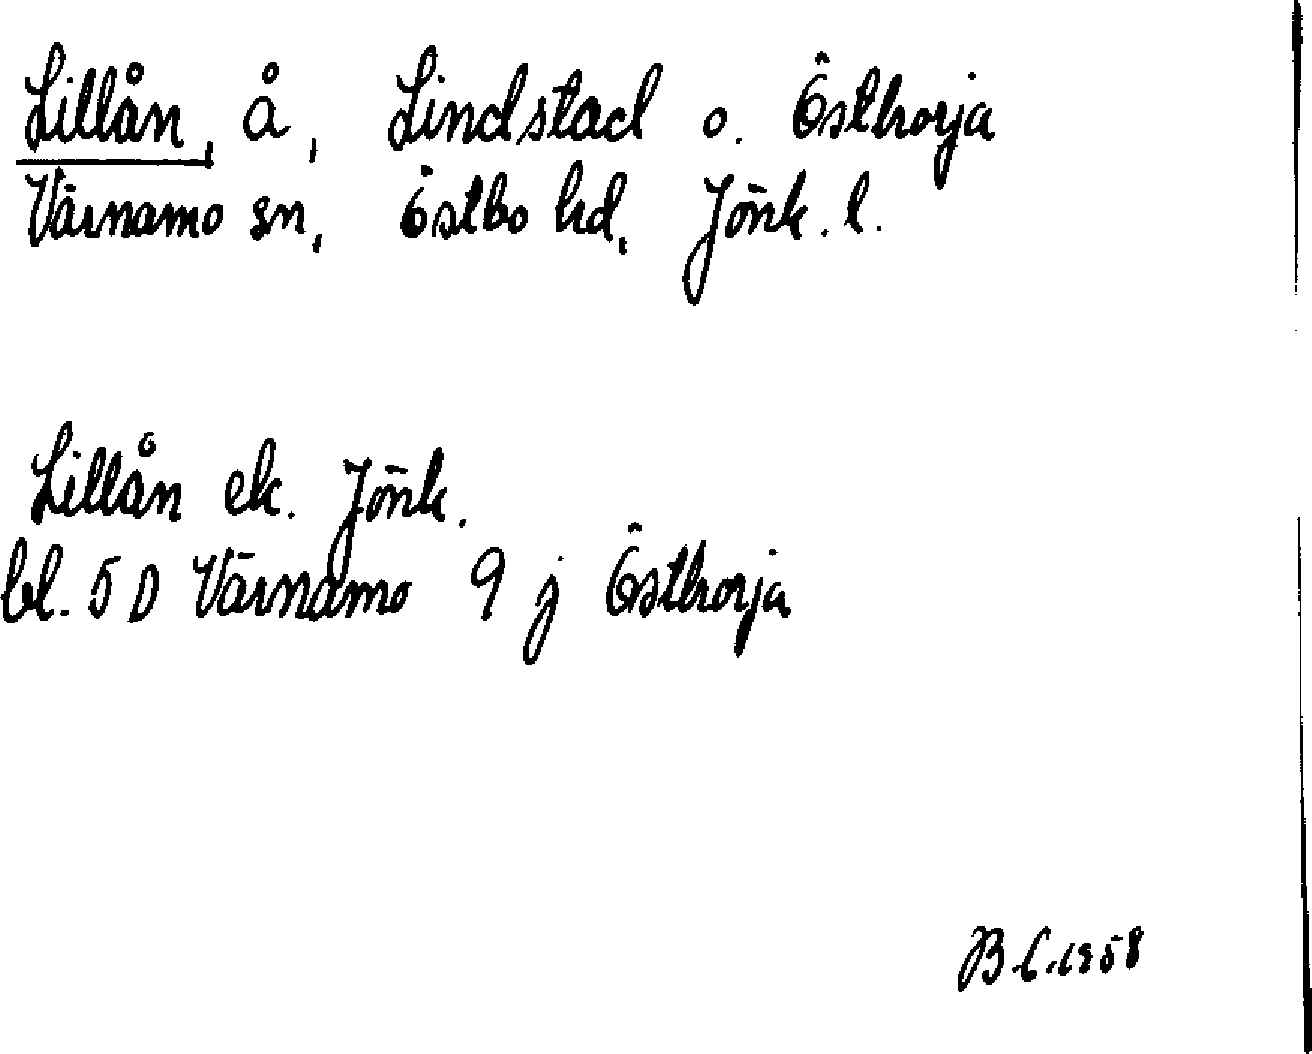 Lillån, å, Lindstad o. Östhorja
Värnamo sn, Östbo hd, Jönk. l.
Lillån ek. Jönk.
bl. 5 D Värnamo 9 j Östhorja
B.C. 1958